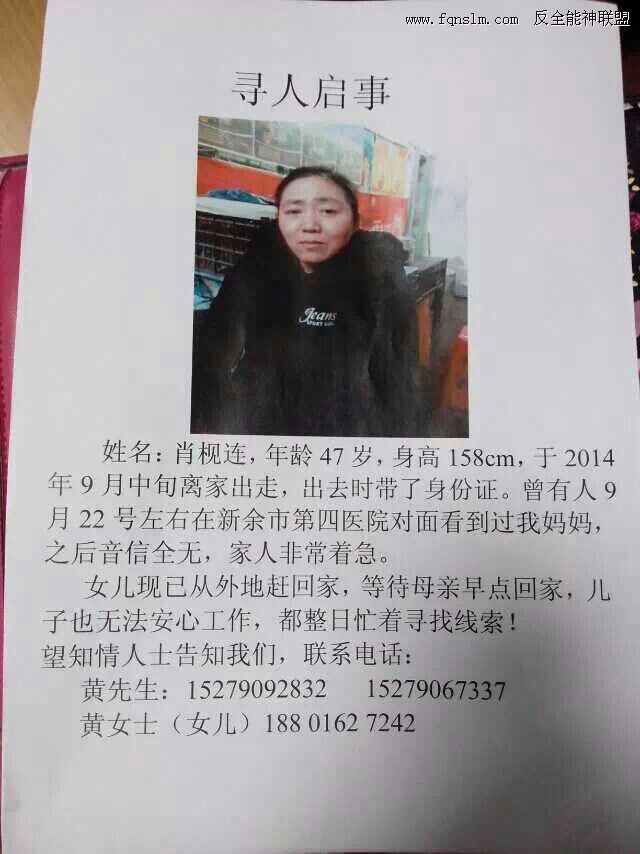 www.fqnslm.com 反全能神联盟
寻人启事
Jeans
姓名：肖枧连，年龄 47 岁，身高 158cm，于 2014
年 9 月中旬离家出走，出去时带了身份证。曾有人 9
月 22 号左右在新余市第四医院对面看到过我妈妈，
之后音信全无，家人非常着急。
女儿现已从外地赶回家，等待母亲早点回家，儿
子也无法安心工作，都整日忙着寻找线索！
望知情人士告知我们，联系电话：
黄先生：15279092832 15279067337
黄女士（女儿）188 0162 7242